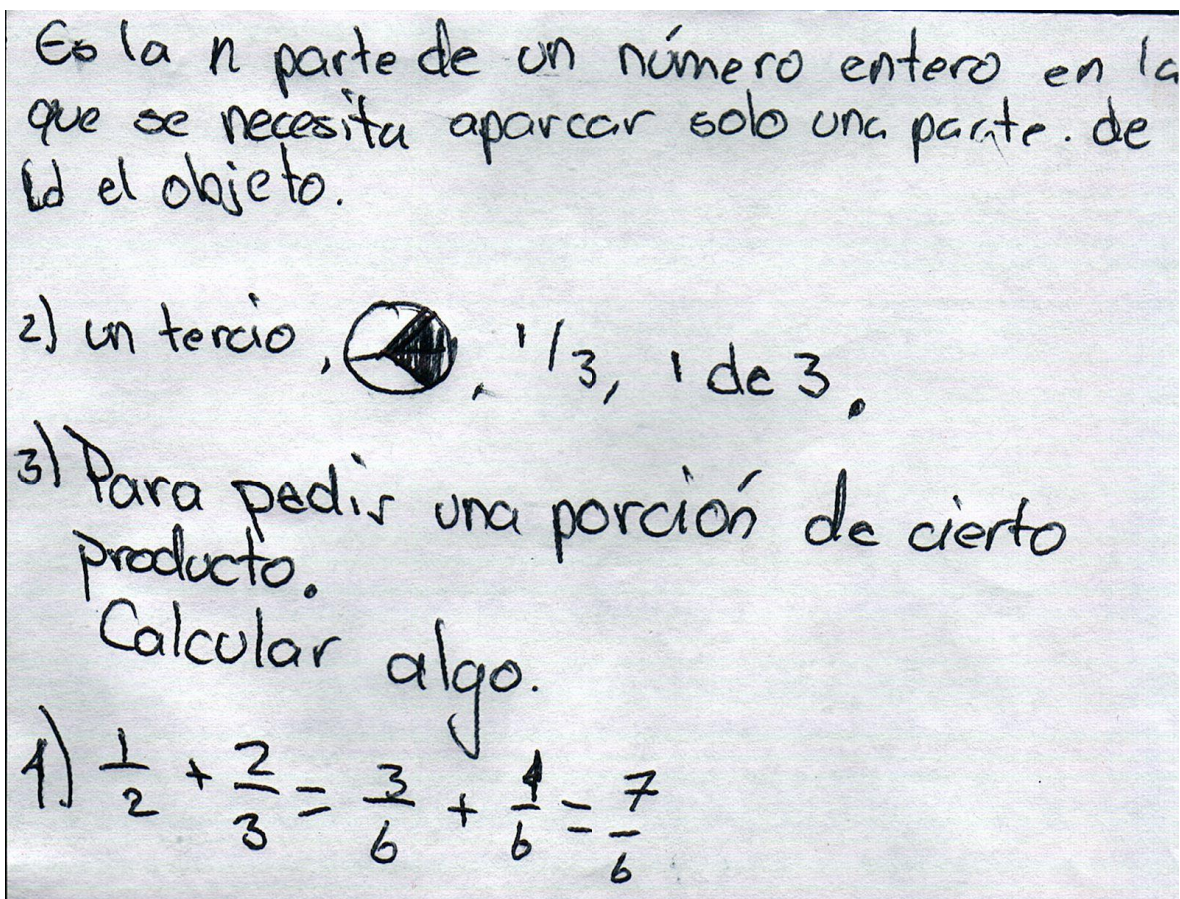 Es la n parte de un número entero en la
que se necesita aparcar solo una parte. de
el objeto.
2) un tercio, , 1/3, 1 de 3.
3) Para pedir una porción de cierto
producto.
Calcular algo.
4) 1/2 + 2/3 = 3/6 + 4/6 = 7/6